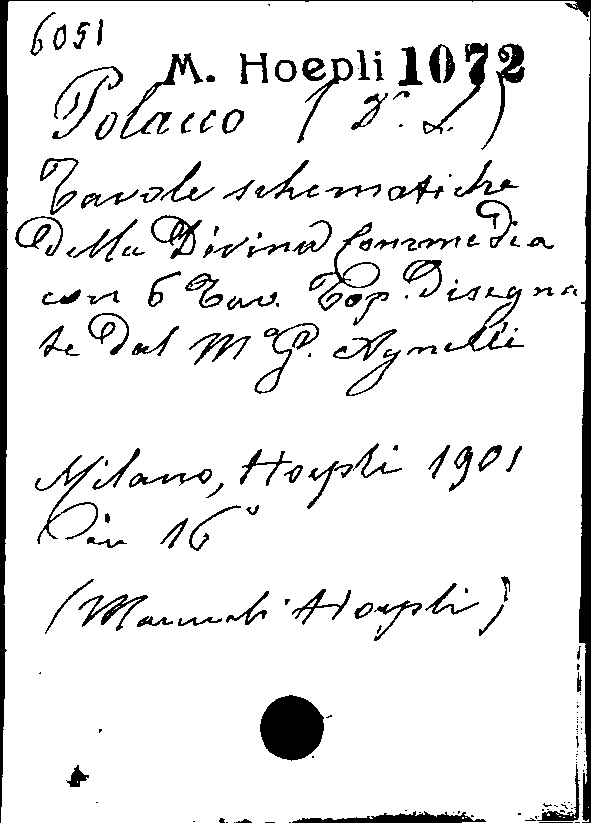 6051
M. Hoepli 1072
Polacco (Dr. L.)
Tavole schematiche
della Divina Commedia
con 6 Tav. Top. disegna
te dal Mo G. Agnelli
Milano, Hoepli 1901
in 16°
(Manuali Hoepli)